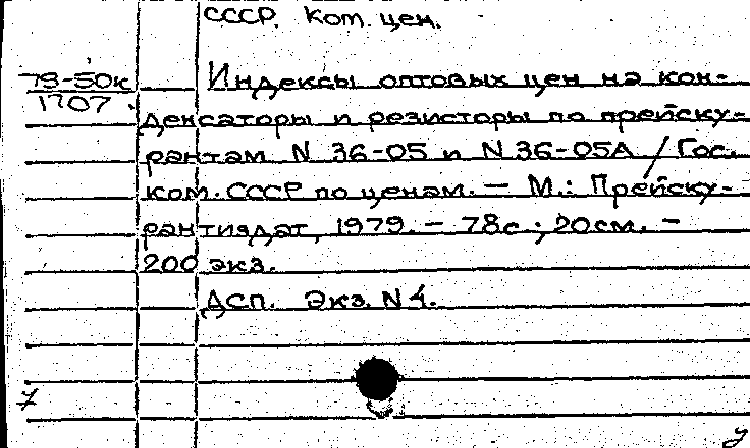 СССР. Ком. цен.
79-50к
1707
Индексы оптовых цен на кон-
денсаторы и резисторы по прейску-
рантам N 36-05 и N 36-05А / Гос.
ком. СССР по ценам. — М.: Прейску-
рантиздат, 1979. — 78с ; 20см. —
200 экз.
ДСП. Экз. N 4.
7
У